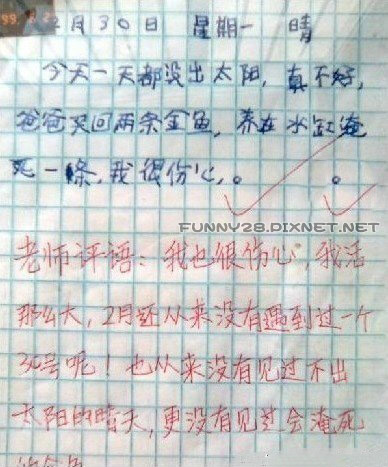 2月30日 星期一 晴
今天一天都没出太阳，真不好，
爸爸买回两条金鱼，养在水缸淹
死一條，我很伤心。。
FUNNY28.DIXNET.NET
老师评语：我也很伤心，我活
那么大，2月还从来没有遇到过一个
30号呢！也从来没有见过不出
太阳的晴天，更没有见过会淹死
的金鱼